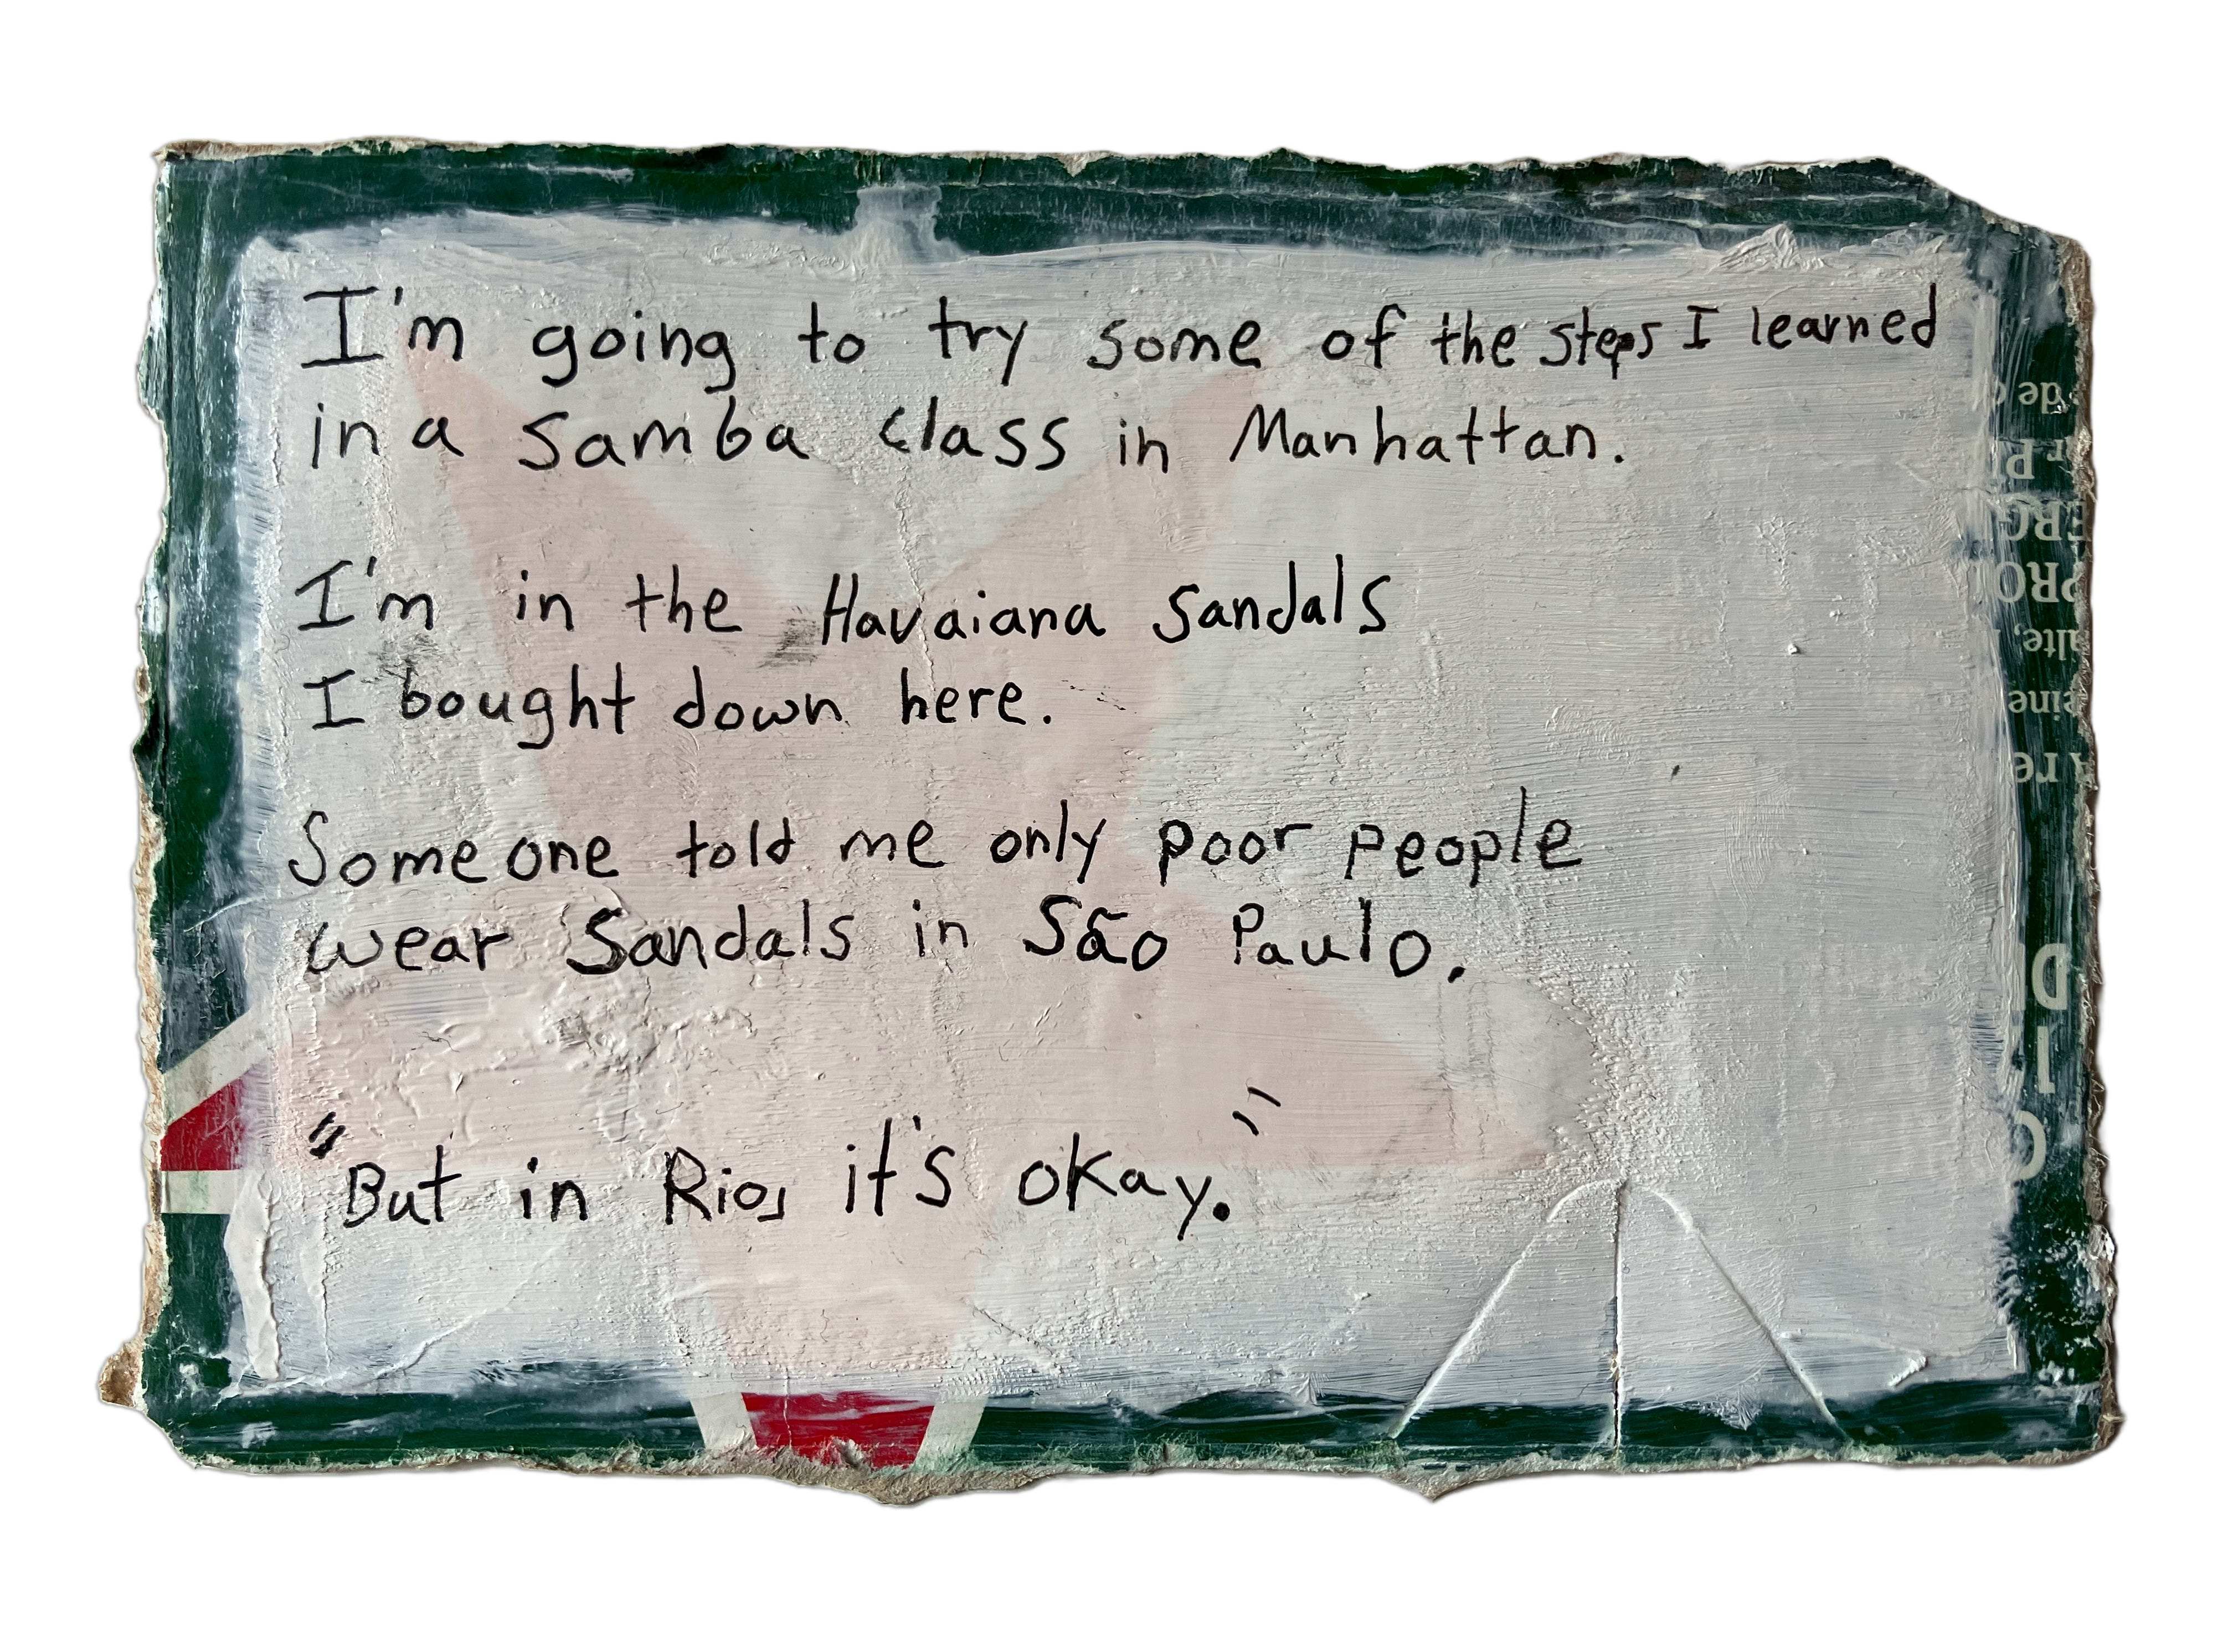 I'm going to try some of the steps I learned
in a samba class in Manhattan.
I'm in the Havaiana sandals
I bought down here.
Someone told me only poor people
wear sandals in São Paulo.
"But in Rio, it's okay."